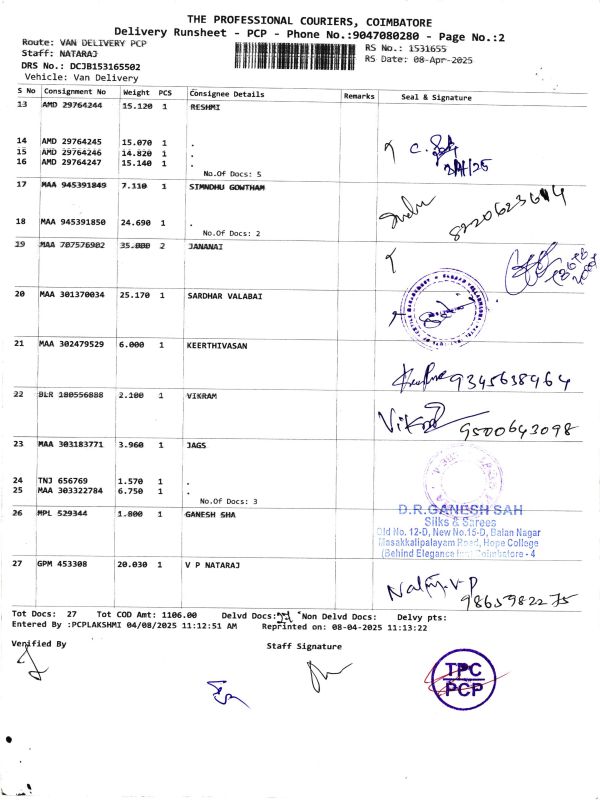 THE PROFESSIONAL COURIERS, COIMBATORE
Delivery Runsheet - PCP - Phone No.:9047080280 - Page No.:2
Route: VAN DELIVERY PCP
Staff: NATARAJ
DRS No.: DCJB153165502
Vehicle: Van Delivery
RS No.: 1531655
RS Date: 08-Apr-2025
S No Consignment No Weight PCS Consignee Details Remarks Seal & Signature
13 AMD 29764244 15.120 1 RESHMI
14 AMD 29764245 15.070 1 .
15 AMD 29764246 14.820 1 .
16 AMD 29764247 15.140 1 .
No.Of Docs: 5
17 MAA 945391849 7.110 1 SIMNDHU GOWTHAM
8220623614
18 MAA 945391850 24.690 1 .
No.Of Docs: 2
19 MAA 707576902 35.000 2 JANANAI
20 MAA 301370034 25.170 1 SARDHAR VALABAI
21 MAA 302479529 6.000 1 KEERTHIVASAN
9345638464
22 BLR 180556888 2.100 1 VIKRAM
9500643098
23 MAA 303183771 3.960 1 JAGS
24 TNJ 656769 1.570 1 .
25 MAA 303322784 6.750 1 .
No.Of Docs: 3
26 MPL 529344 1.800 1 GANESH SHA
D.R.GANESH SAH
Silks & Sarees
Old No. 12-D, New No.15-D, Balan Nagar
Masakkalipalayam Road, Hope College
(Behind Elegance Coimbatore - 4
27 GPM 453308 20.030 1 V P NATARAJ
9865982275
Tot Docs: 27 Tot COD Amt: 1106.00 Delvd Docs: Non Delvd Docs: Delvy pts:
Entered By :PCPLAKSHMI 04/08/2025 11:12:51 AM Reprinted on: 08-04-2025 11:13:22
Verified By
Staff Signature
TPC
PCP